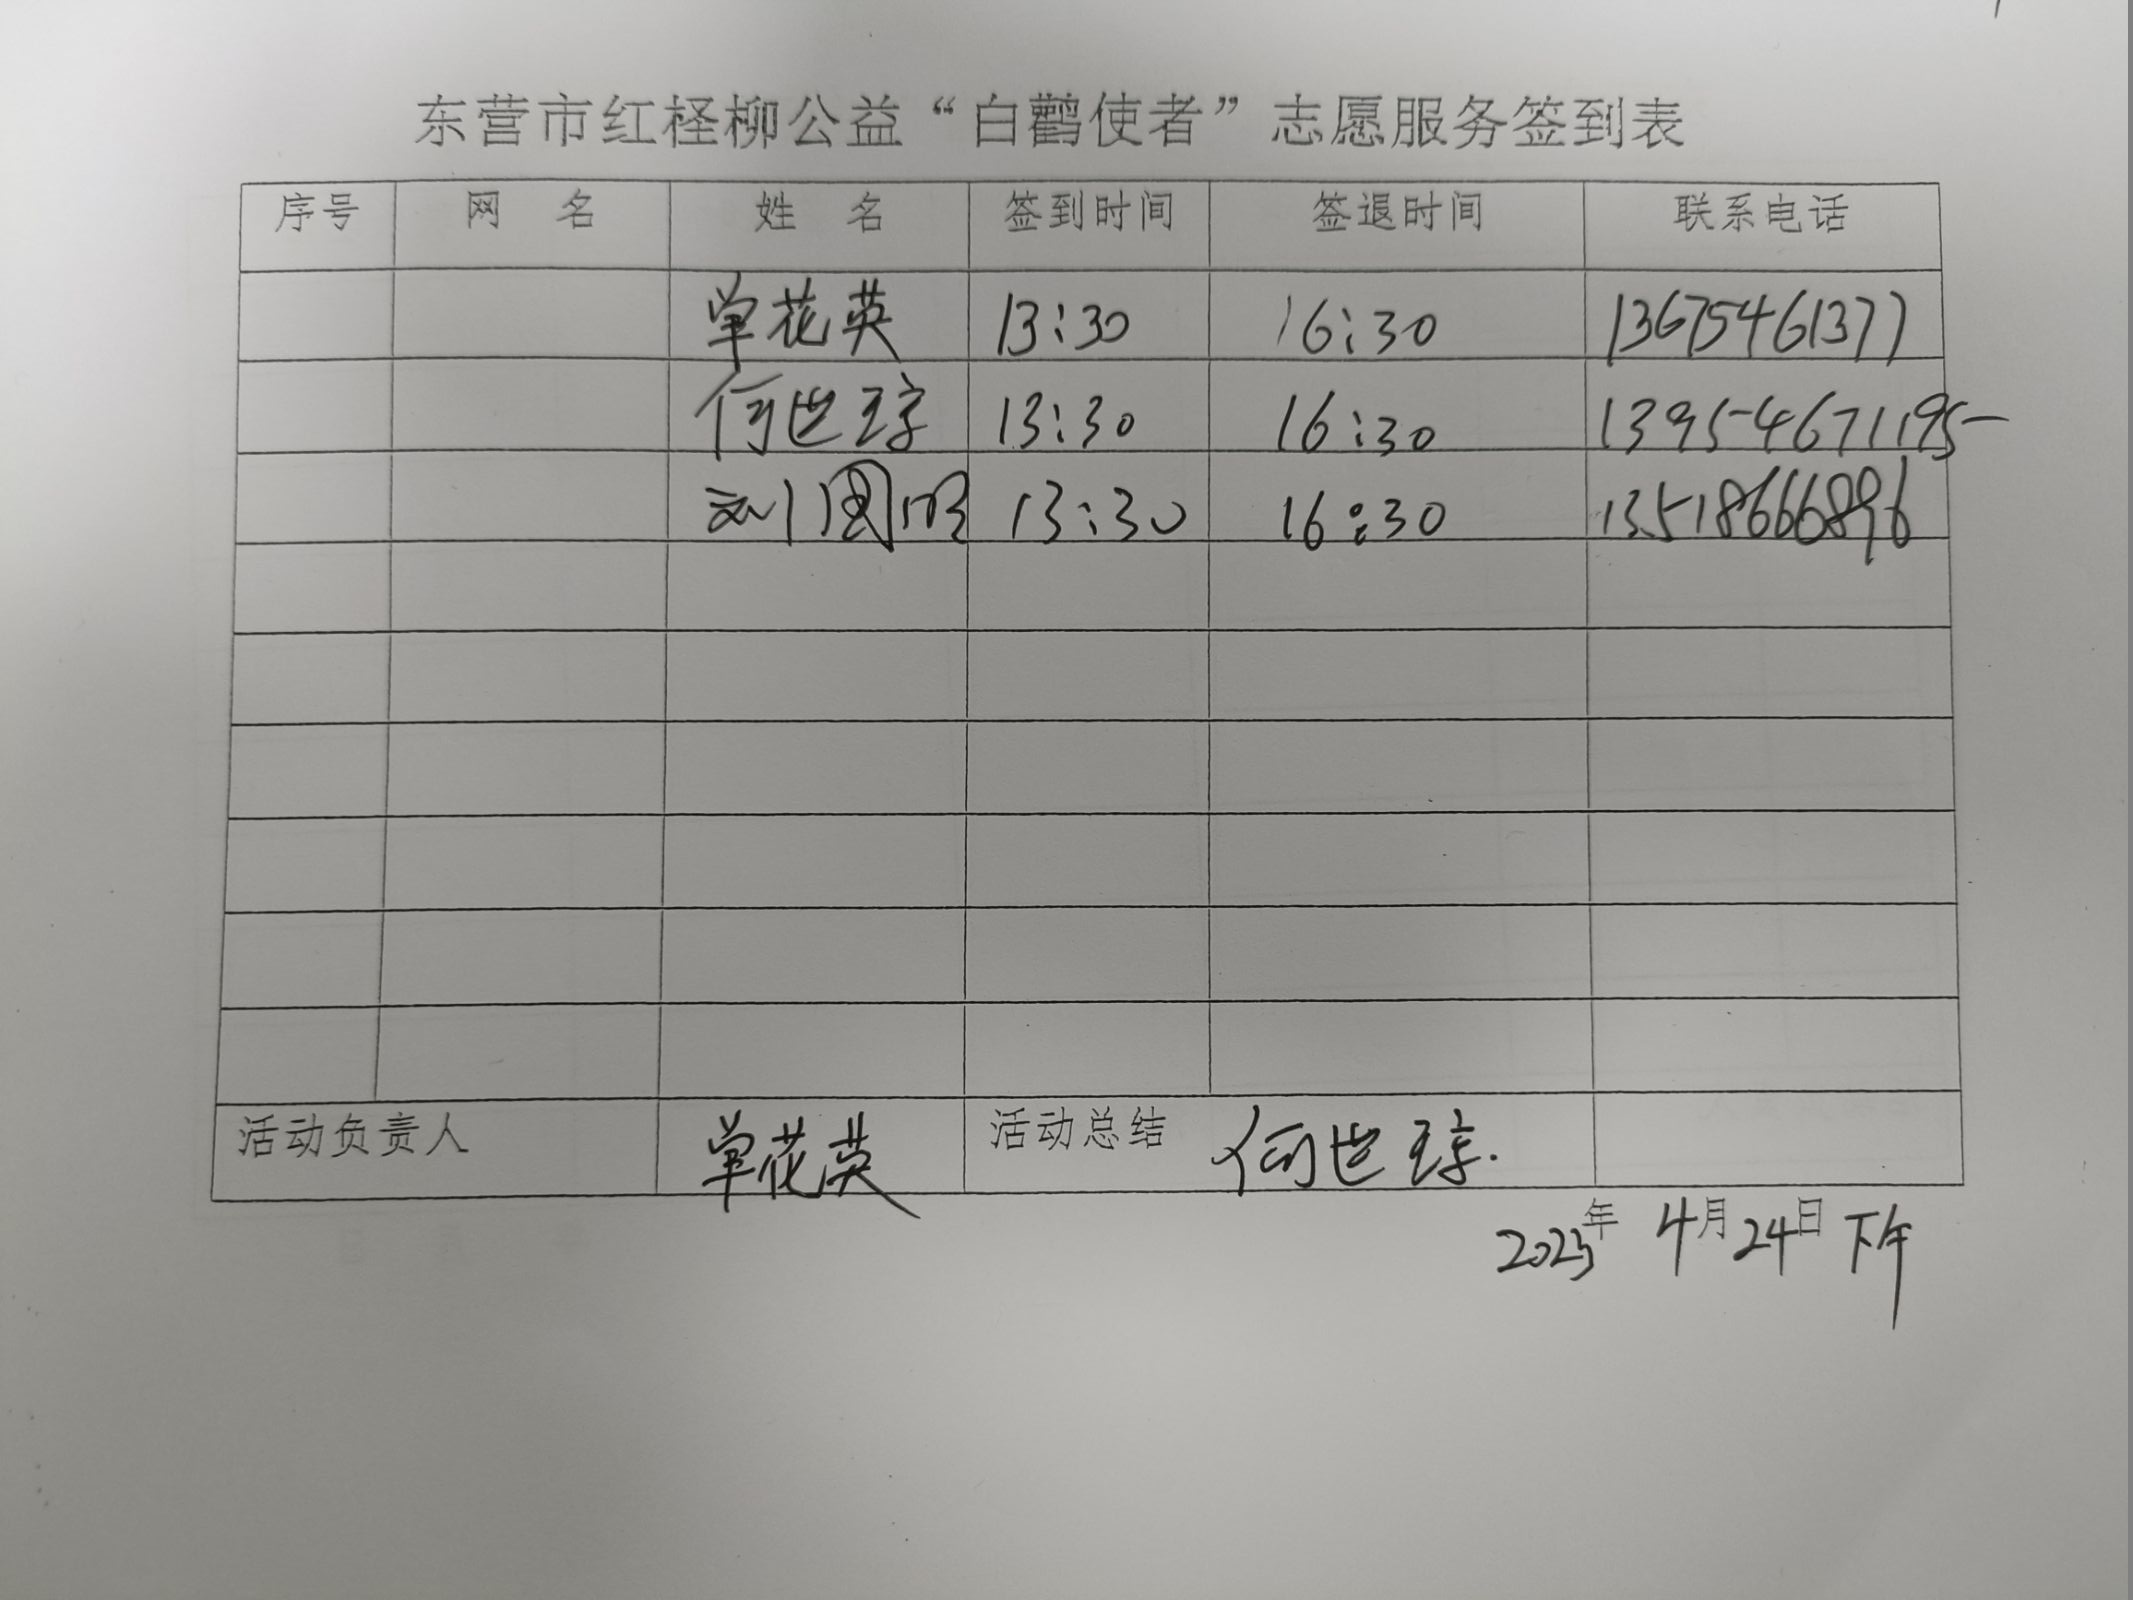 东营市红柽柳公益“白鹳使者”志愿服务签到表
序号 网 名 姓 名 签到时间 签退时间 联系电话
单花英 13:30 16:30 13675461377
何世琼 13:30 16:30 13954671195
刘国明 13:30 16:30 13518666896
活动负责人 单花英 活动总结 何世琼.
2023年 4月24日下午